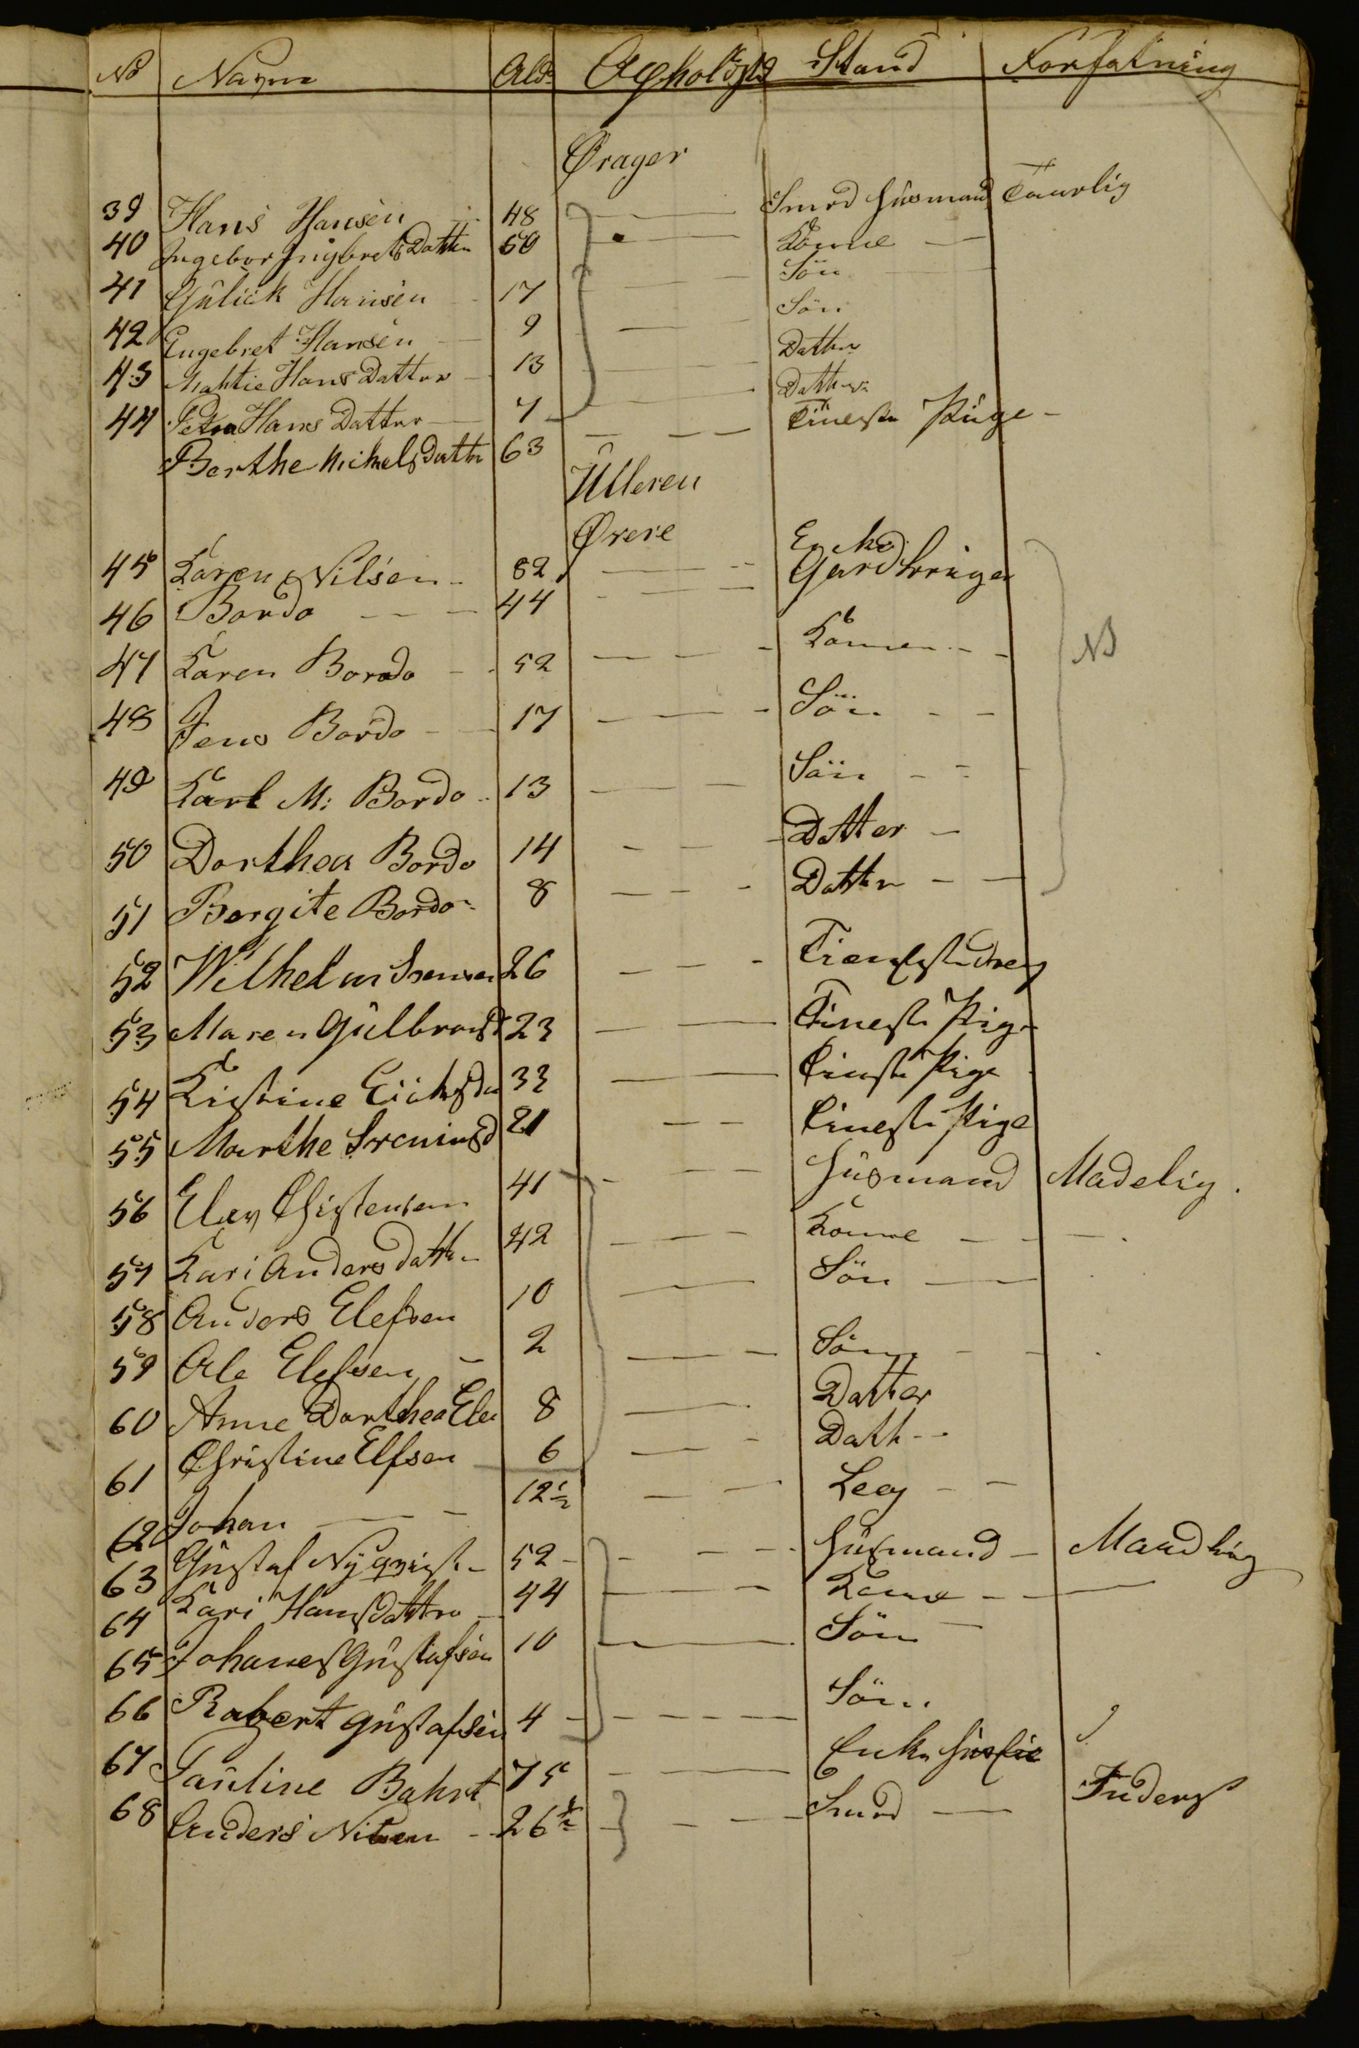 No Navn Ald. Opholdstd Stand Forfatning
Ørager
39 Hans Hansen 48 Smed Husmand Taarlig
40 Ingebor Ingbrets Datter 50 Konne
41 Gulick Hansen 17 Søn
42 Engebret Hansen 9 Søn
43 Mahtie Hans Datter 13 Datter
44 Petra Hans Datter 7 Datter
Berthe Mikelsdatter 63 Tineste Piige
Ulleren
Øvere
45 Karen Nilsen 82 Enke
46 Bordo 44 Gardbruger
47 Karen Bordo 52 Konnen
48 Jens Bordo 17 Søn
49 Karl M: Bordo 13 Søn
50 Dorthea Bordo 14 Datter
51 Bergite Bordo 8 Datter
NB
52 Wilhelm Svensen 26 Tienestedreng
53 Maren Gulbransd 23 Tineste Pige
54 Kistine 33 Tinste Pige
55 Marthe 21 Tineste Pige
56 Elev Christensen 41 Husmand Madelig.
57 Kari Anders datter 42 Konne
58 Anders Elefsen 10 Søn
59 Ole Elefsen 2 Søn
60 Anne Dorthea Ele 8 Datter
61 Christine Elfsen 6 Datt
62 Johan 12½ Leg
63 Gustaf Nyqvist 52 Husmand Maadlig
64 Kari Hansdatter 44 Kone
65 Johanes Gustafsen 10 Søn
66 Robert Gustafsen 4 Søn
67 Pauline Bahrt 75 Enke
68 Anders Nilsen 26½ Smed Inderst